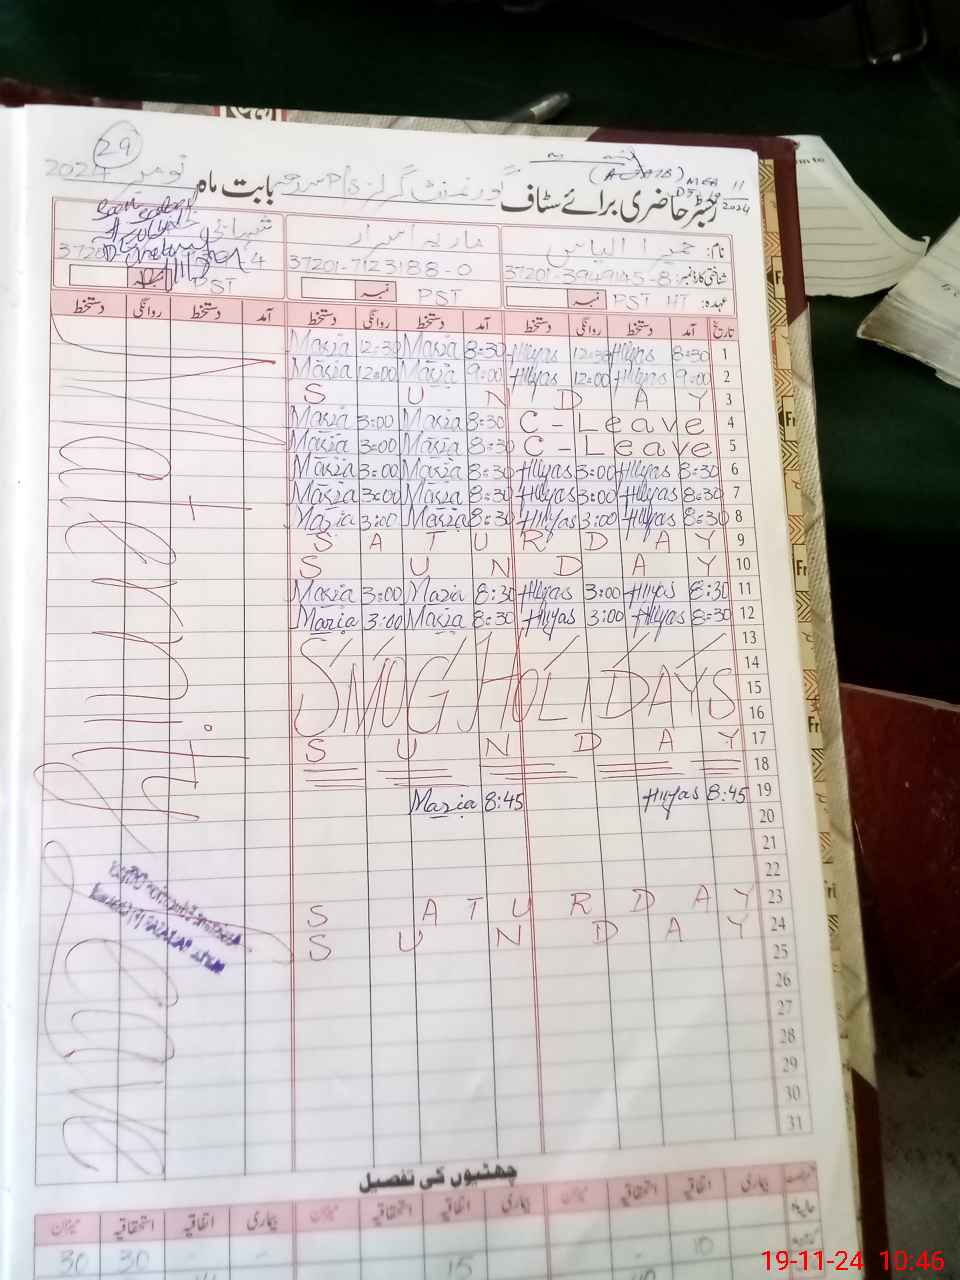 29
رجسٹر حاضری برائے سٹاف گورنمنٹ گرلز P/S بابت ماہ نومبر 2024
نام: حمیرا الیاس ماریہ اسرار
شناختی کارڈ نمبر: 37201-3949145-8 37201-7123188-0
عہدہ: PST HT نمبر PST نمبر PST
تاریخ آمد دستخط روانگی دستخط آمد دستخط روانگی دستخط آمد دستخط روانگی دستخط
1 8:30 Hllyas 12:30 Hllyas 8:30 Maria 12:30 Maria
2 9:00 Hllyas 12:00 Hllyas 9:00 Maria 12:00 Maria
3 SUNDAY
4 C-Leave 8:30 Maria 3:00 Maria
5 C-Leave 8:30 Maria 3:00 Maria
6 8:30 Hllyas 3:00 Hllyas 8:30 Maria 3:00 Maria
7 8:30 Hllyas 3:00 Hllyas 8:30 Maria 3:00 Maria
8 8:30 Hllyas 3:00 Hllyas 8:30 Maria 3:00 Maria
9 SATURDAY
10 SUNDAY
11 8:30 Hllyas 3:00 Hllyas 8:30 Maria 3:00 Maria
12 8:30 Hllyas 3:00 Hllyas 8:30 Maria 3:00 Maria
13
14
15 SMOG HOLIDAYS
16
17 SUNDAY
18
19 8:45 Hllyas 8:45 Maria
20
21
22
23 SATURDAY
24 SUNDAY
25
26
27
28
29
30
31
Maternity Leave
چھٹیوں کی تفصیل
بیماری اتفاقیہ استحقاقیہ میزان بیماری اتفاقیہ استحقاقیہ میزان بیماری اتفاقیہ استحقاقیہ میزان
10 - 15 - - 30 30
19-11-24 10:46